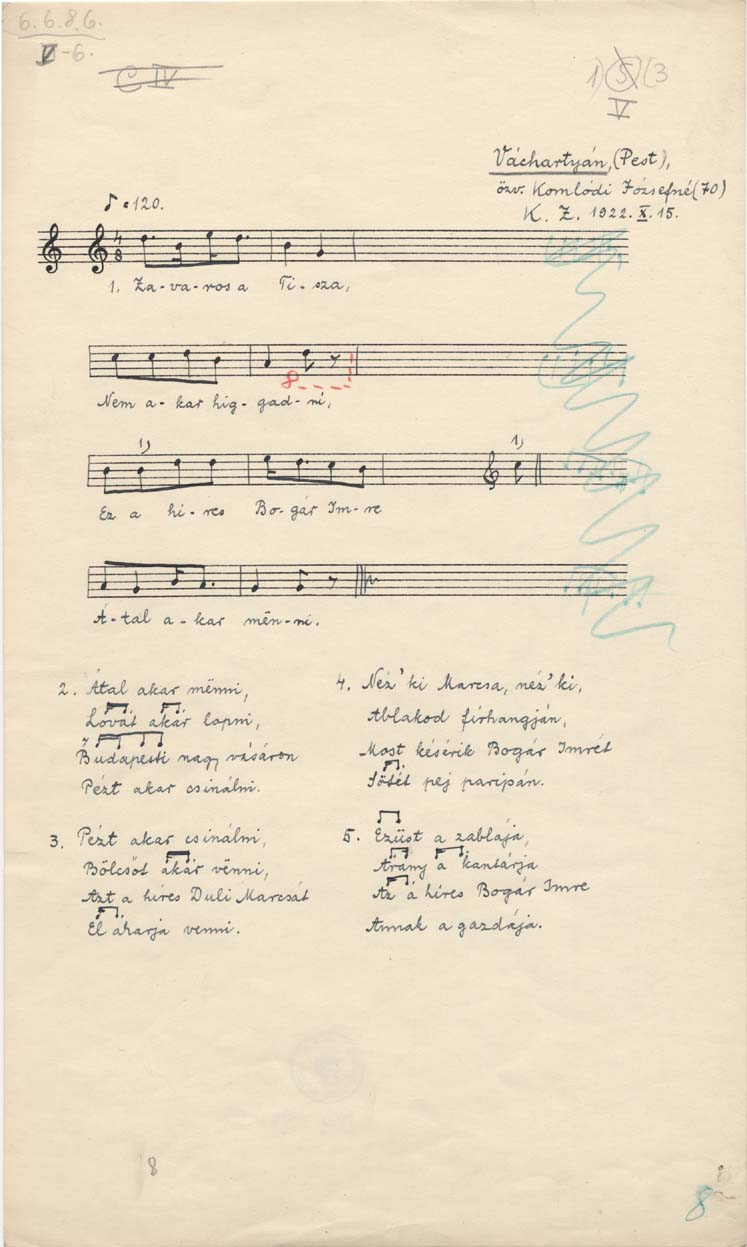 6.6.8.6.
V-6.
C IV
1) 5 (3
V
Váchartyán, (Pest),
özv. Komlódi Józsefné (70)
K. Z. 1922. X. 15.
♪ = 120.
4
8
1. Za-va-ros a Ti-sza,
8
Nem a-kar hig-gad-ni,
1) 1)
Ez a hi-res Bo-gár Im-re
Á-tal a-kar mën-ni.
2. Átal akar mënni,
Lovát akar lopni,
Budapesti nagy vásáron
Pézt akar csinálni.
3. Pézt akar csinálni,
Bölcsőt akar vënni,
Azt a híres Duli Marcsát
El akarja venni.
4. Néz' ki Marcsa, néz' ki,
Ablakod firhangján,
Most késérik Bogár Imrét
Sötét pej paripán.
5. Ezüst a zablája,
Arany a kantárja
Az a híres Bogár Imre
Annak a gazdája.
8
8